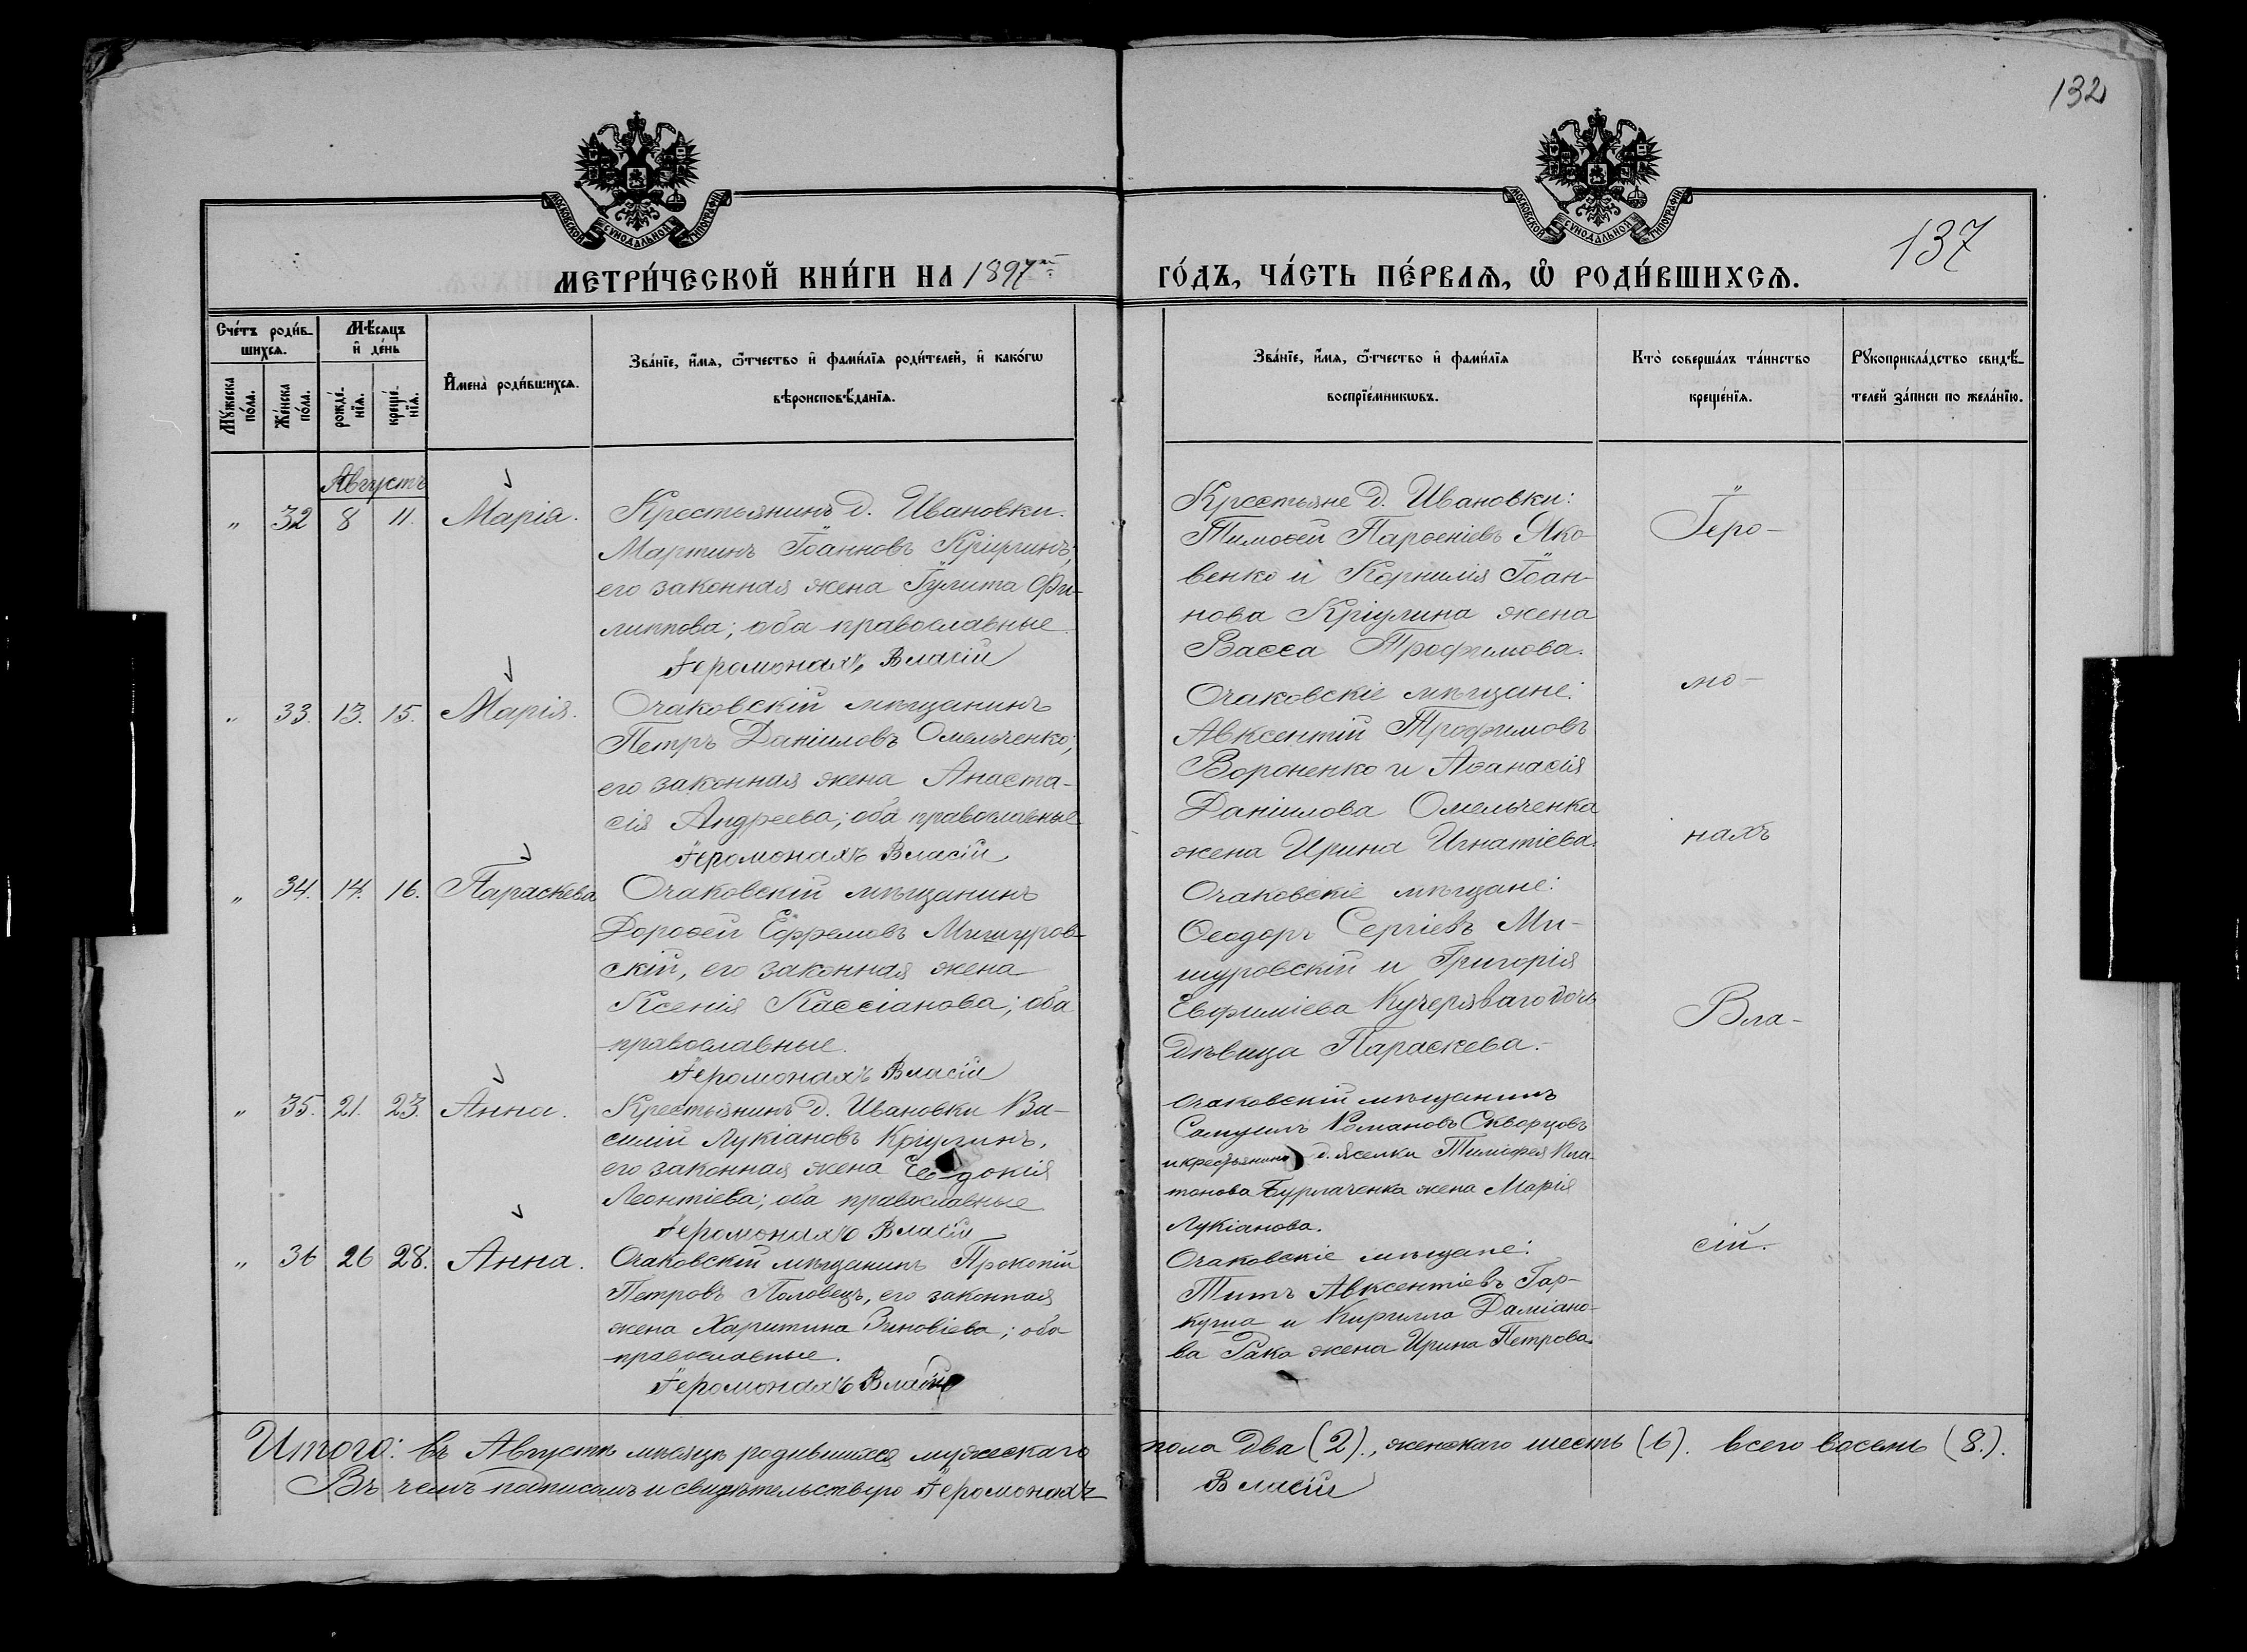 132
137
МОСКОВСКОЙ СУНОДАЛЬНОЙ ТИПОГРАФІИ
МОСКОВСКОЙ СУНОДАЛЬНОЙ ТИПОГРАФІИ
МЕТРИ́ЧЕСКОЙ КНИ́ГИ НА 1897й
ГО́ДЪ, ЧА́СТЬ ПЕ́РВАѦ, Ѽ РОДИ́ВШИХСѦ.
Сче́тъ роди́вшихсѧ.
Му́жеска по́ла.
Же́нска по́ла.
Мѣ́сѧцъ и де́нь
рожде́нїѧ.
креще́нїѧ.
Имена̀ роди́вшихсѧ.
Зва́нїе, и́мѧ, ѻ́тчество и фами́лїѧ роди́телей, и како́гѡ
вѣроисповѣ́данїѧ.
Зва́нїе, и́мѧ, ѻ́тчество и фами́лїѧ
воспрїе́мникѡвъ.
Кто̀ соверша́лъ та́инство
креще́нїѧ.
Рꙋкоприкла́дство свидѣ́-
телей за́писи по жела́нїю.
Августъ
" 32 8 11. Марія.
Крестьянинъ д. Ивановки.
Мартинъ Іоанновъ Кріулинъ,
его законная жена Іулита Фи-
липпова; оба православные
Іеромонахъ Власій
Крестьяне д. Ивановки:
Тимоѳей Парѳеніевъ Яко-
венко и Корнилія Іоан-
нова Кріулина жена
Васса Трофимова.
Іеро-
" 33. 13. 15. Марія.
Очаковскій мѣщанинъ
Петръ Даніиловъ Омельченко,
его законная жена Анаста-
сія Андреева; оба православные
Іеромонахъ Власій
Очаковскіе мѣщане:
Авксентій Трофимовъ
Вороненко и Аѳанасія
Даніилова Омельченка
жена Ирина Игнатіева.
мо-
нахъ
" 34. 14. 16. Параскева
Очаковскій мѣщанинъ
Дороѳей Ефремовъ Мишуров-
скій, его законная жена
Ксенія Кассіанова; оба
православные.
Іеромонахъ Власій
Очаковскіе мѣщане:
Ѳеодоръ Сергіевъ Ми-
шуровскій и Григорія
Евфиміева Кучеряваго дочь
дѣвица Параскева.
Вла-
" 35. 21. 23. Анна.
Крестьянинъ д. Ивановки Ва-
силій Лукіановъ Кріулинъ,
его законная жена Евдокія
Леонтіева; оба православные
Іеромонахъ Власій
Очаковскій мѣщанинъ
Самуилъ Романовъ Скворцовъ
и крестьянина д. Яселки Тимофея Пла-
тонова Бурлаченка жена Марія
Лукіанова.
" 36 26 28. Анна.
Очаковскій мѣщанинъ Прокопій
Петровъ Половецъ, его законная
жена Харитина Зиновіева; оба
православные.
Іеромонахъ Власій
Очаковскіе мѣщане:
Титъ Авксентіевъ Гар-
куша и Кирилла Даміано-
ва Рака жена Ирина Петрова.
сій.
Итого: въ Августѣ мѣсяцѣ родившихся мужескаго
пола два (2)., женскаго шесть (6). всего восемь (8.).
Въ чемъ подписомъ и свидѣтельствую Іеромонахъ
Власій